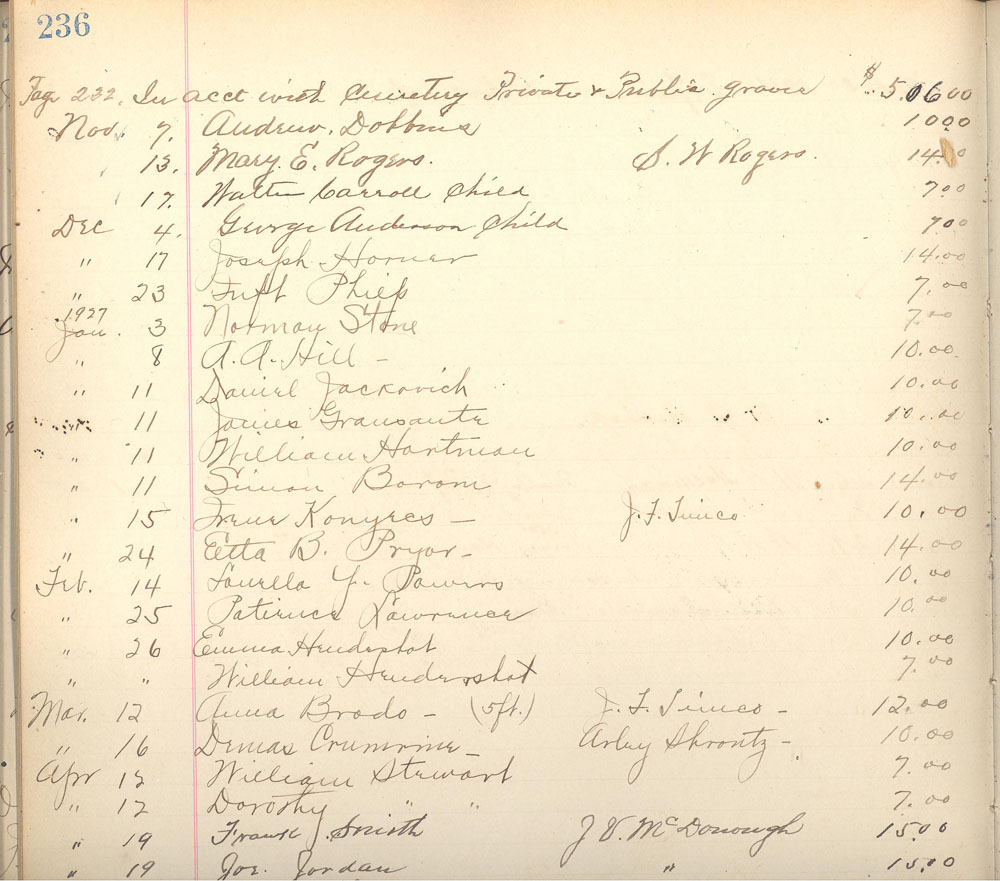 236
Page 232. In acct with Cemetery Private & Public graves $ 506 00
Nov. 7. Andrew. Dobbins 10 00
13. Mary. E. Rogers. S. W Rogers. 14.00
17. Walter Carroll Child 7 00
Dec 4. George Anderson Child 7 00
" 17 Joseph Horner 14.00
" 23 Phielp 7.00
1927
Jan. 3 Norman Stone 7.00
" 8 A. A. Hill – 10.00
" 11 Daniel Jackovich 10.00
11 James Gransante 10.00
" 11 William Hartman 10.00
" 11 Simon Borom 14.00
" 15 Irene Konyecs – J. F. Timco 10.00
" 24 Etta B. Pryor – 14.00
Feb. 14 Louella Y. Powers 10.00
" 25 Patience Lawrence 10.00
" 26 Emma Hendershot 10.00
" " William Hendershot 7.00
Mar. 12 Anna Brodo – (5ft.) J. F. Timco – 12.00
" 16 Demas Crumrine – Arley Shrontz – 10.00
Apr 12 William Stewart 7.00
" 12 Dorothy " " 7.00
" 19 Frank J. Smith J V. McDonough 15.00
" 19 Joe. Jordan " 15.00